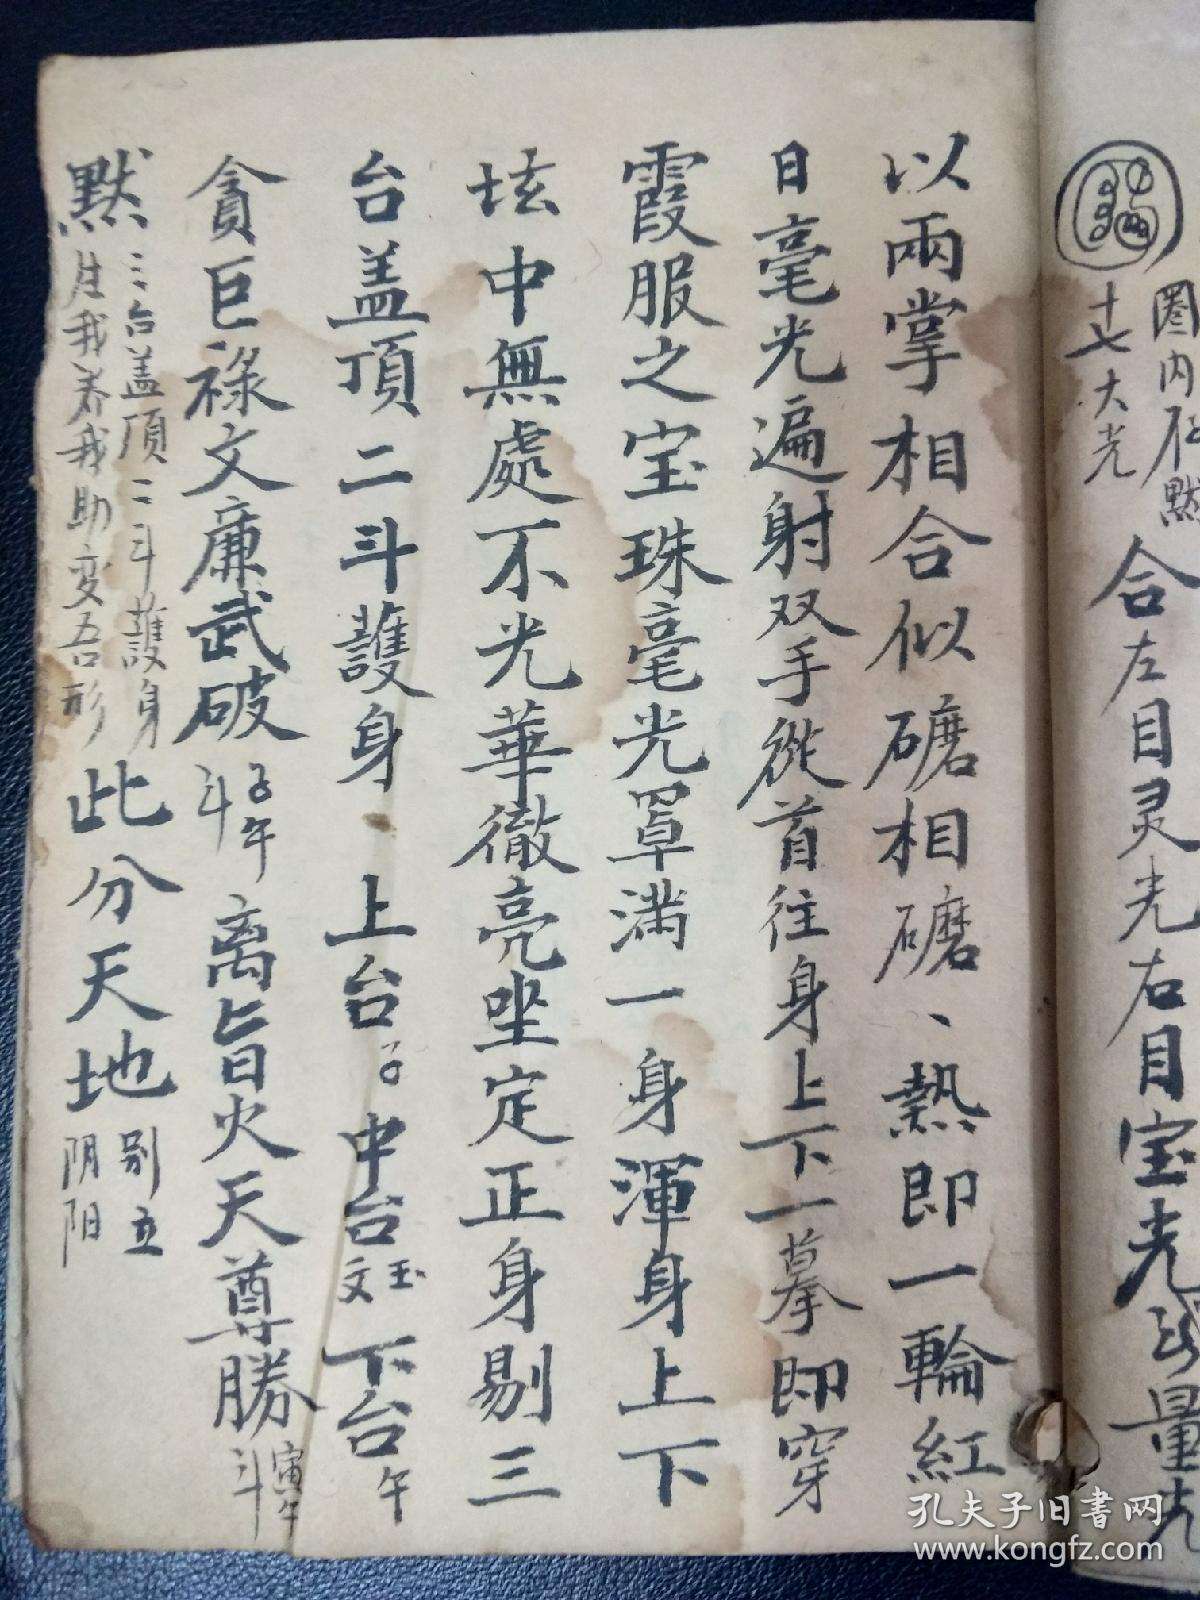 圈内存默
十七大光
合左目灵光右目宝光
量光
以兩掌相合似磨相磨、熱即一輪紅
日毫光遍射双手從首往身上下一摹即穿
霞服之宝珠毫光罩满一身渾身上下
坛中無處不光華徹亮坐定正身剔三
台盖頂二斗護身、上台子中台玉文下台午
貪巨禄文廉武破子午斗离旨火天尊勝寅午斗
默三台盖頂二斗護身生我养我助変吾形此分天地别立阴阳
孔夫子旧书网
www.kongfz.com